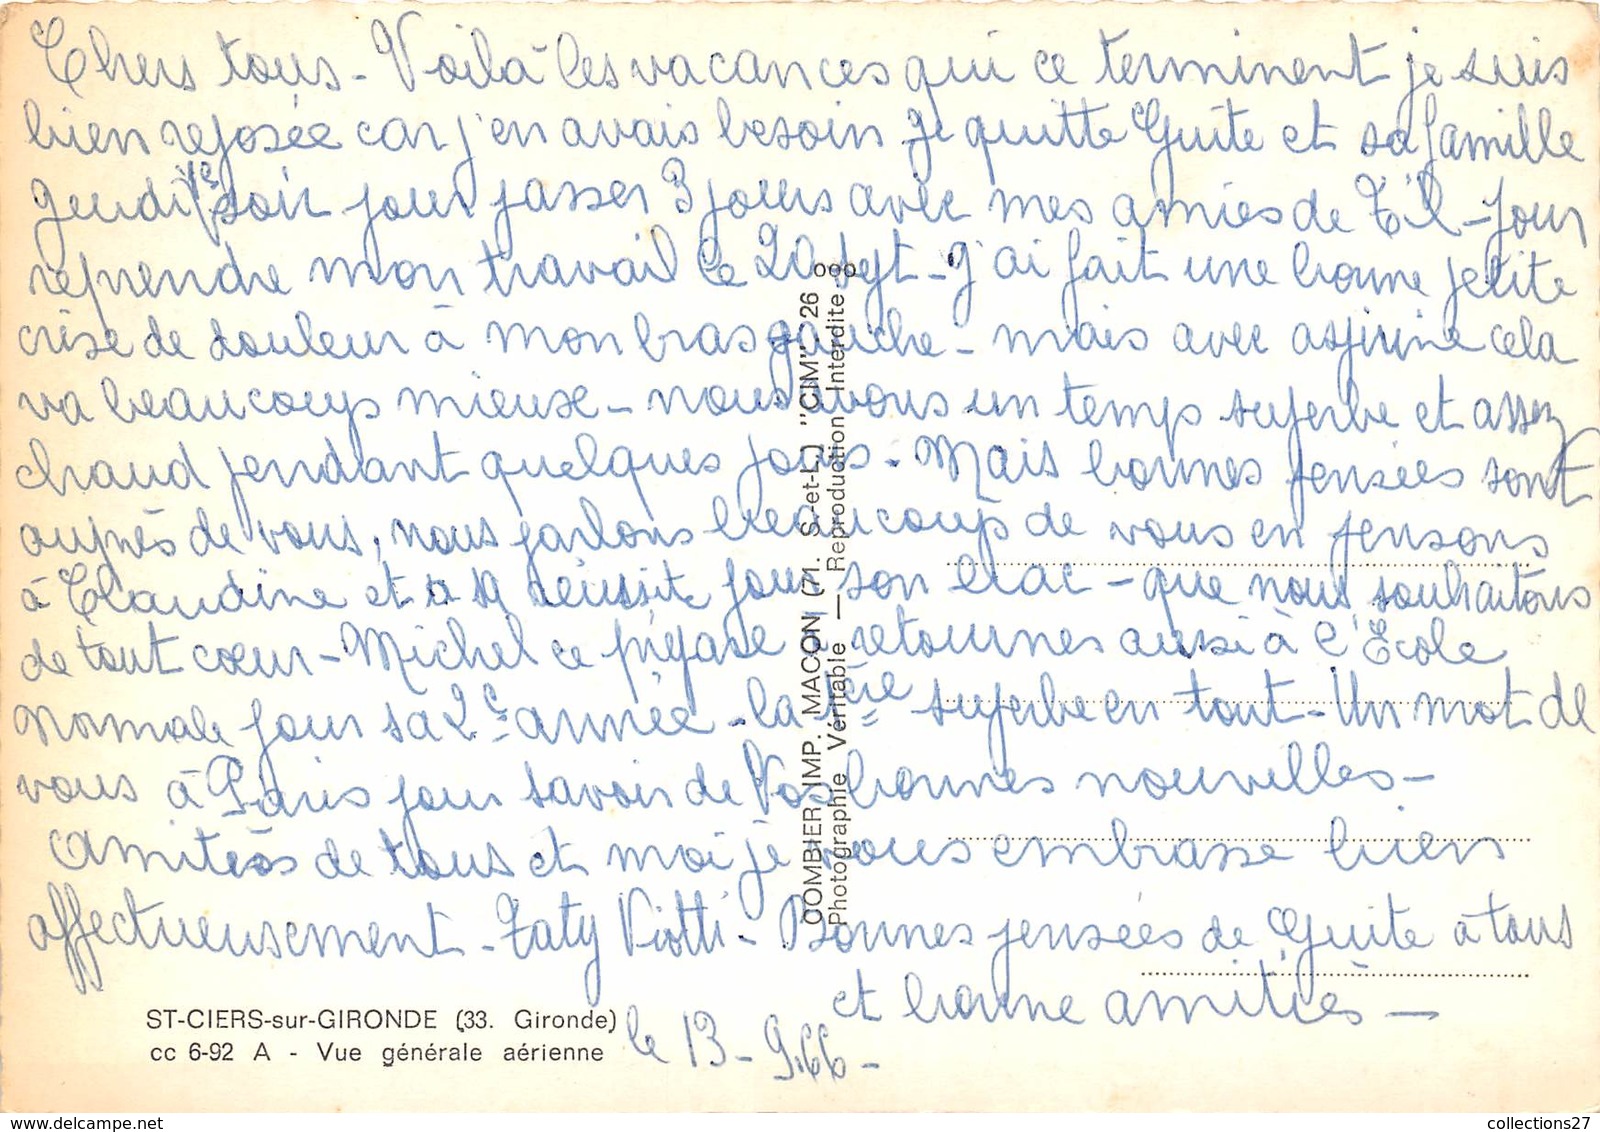 Chers tous - Voilà les vacances qui ce terminent je suis
bien reposée car j'en avais besoin je quitte Guite et sa famille
jeudi soir pour passer 3 jours avec mes amies de - pour
reprendre mon travail le 20 sept - j'ai fait une bonne petite
crise de douleur à mon bras gauche - mais avec aspirine cela
va beaucoup mieuse - nous avons un temps superbe et assez
chaud pendant quelques jours - Mais bonnes pensées sont
auprès de vous, nous parlons beaucoup de vous en pensons
à Claudine et à sa réussite pour son bac - que nous souhaitons
de tout cœur - Michel ce prépare à retournes aussi à l'Ecole
normale pour sa 2e année - la 1ère superbe en tout - Un mot de
vous à Paris pour savoir de Vos bonnes nouvilles -
amitiés de tous et moi je vous embrasse bien
affectueusement - Taty Viotti - Bonnes pensées de Guite à tous
et bonne amitiés -
le 13 - 9.66 -
ST-CIERS-sur-GIRONDE (33. Gironde)
cc 6-92 A - Vue générale aérienne
COMBIER IMP. MACON (71. S.-et-L.) "CIM" 26
Photographie Véritable — Reproduction Interdite
collections27